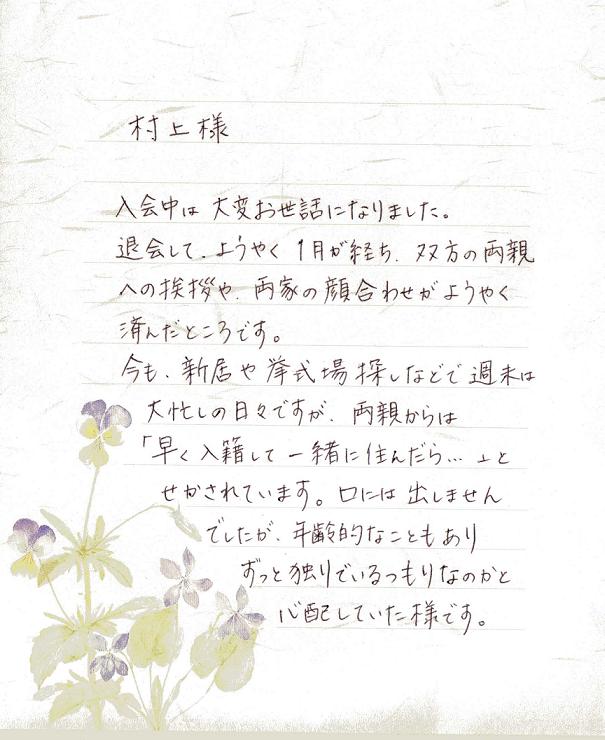 村上様
入会中は大変お世話になりました。
退会して、ようやく1月が経ち、双方の両親
への挨拶や、両家の顔合わせがようやく
済んだところです。
今も、新居や挙式場探しなどで週末は
大忙しの日々ですが、両親からは
「早く入籍して一緒に住んだら…」と
せかされています。口には出しません
でしたが、年齢的なこともあり
ずっと独りでいるつもりなのかと
心配していた様です。